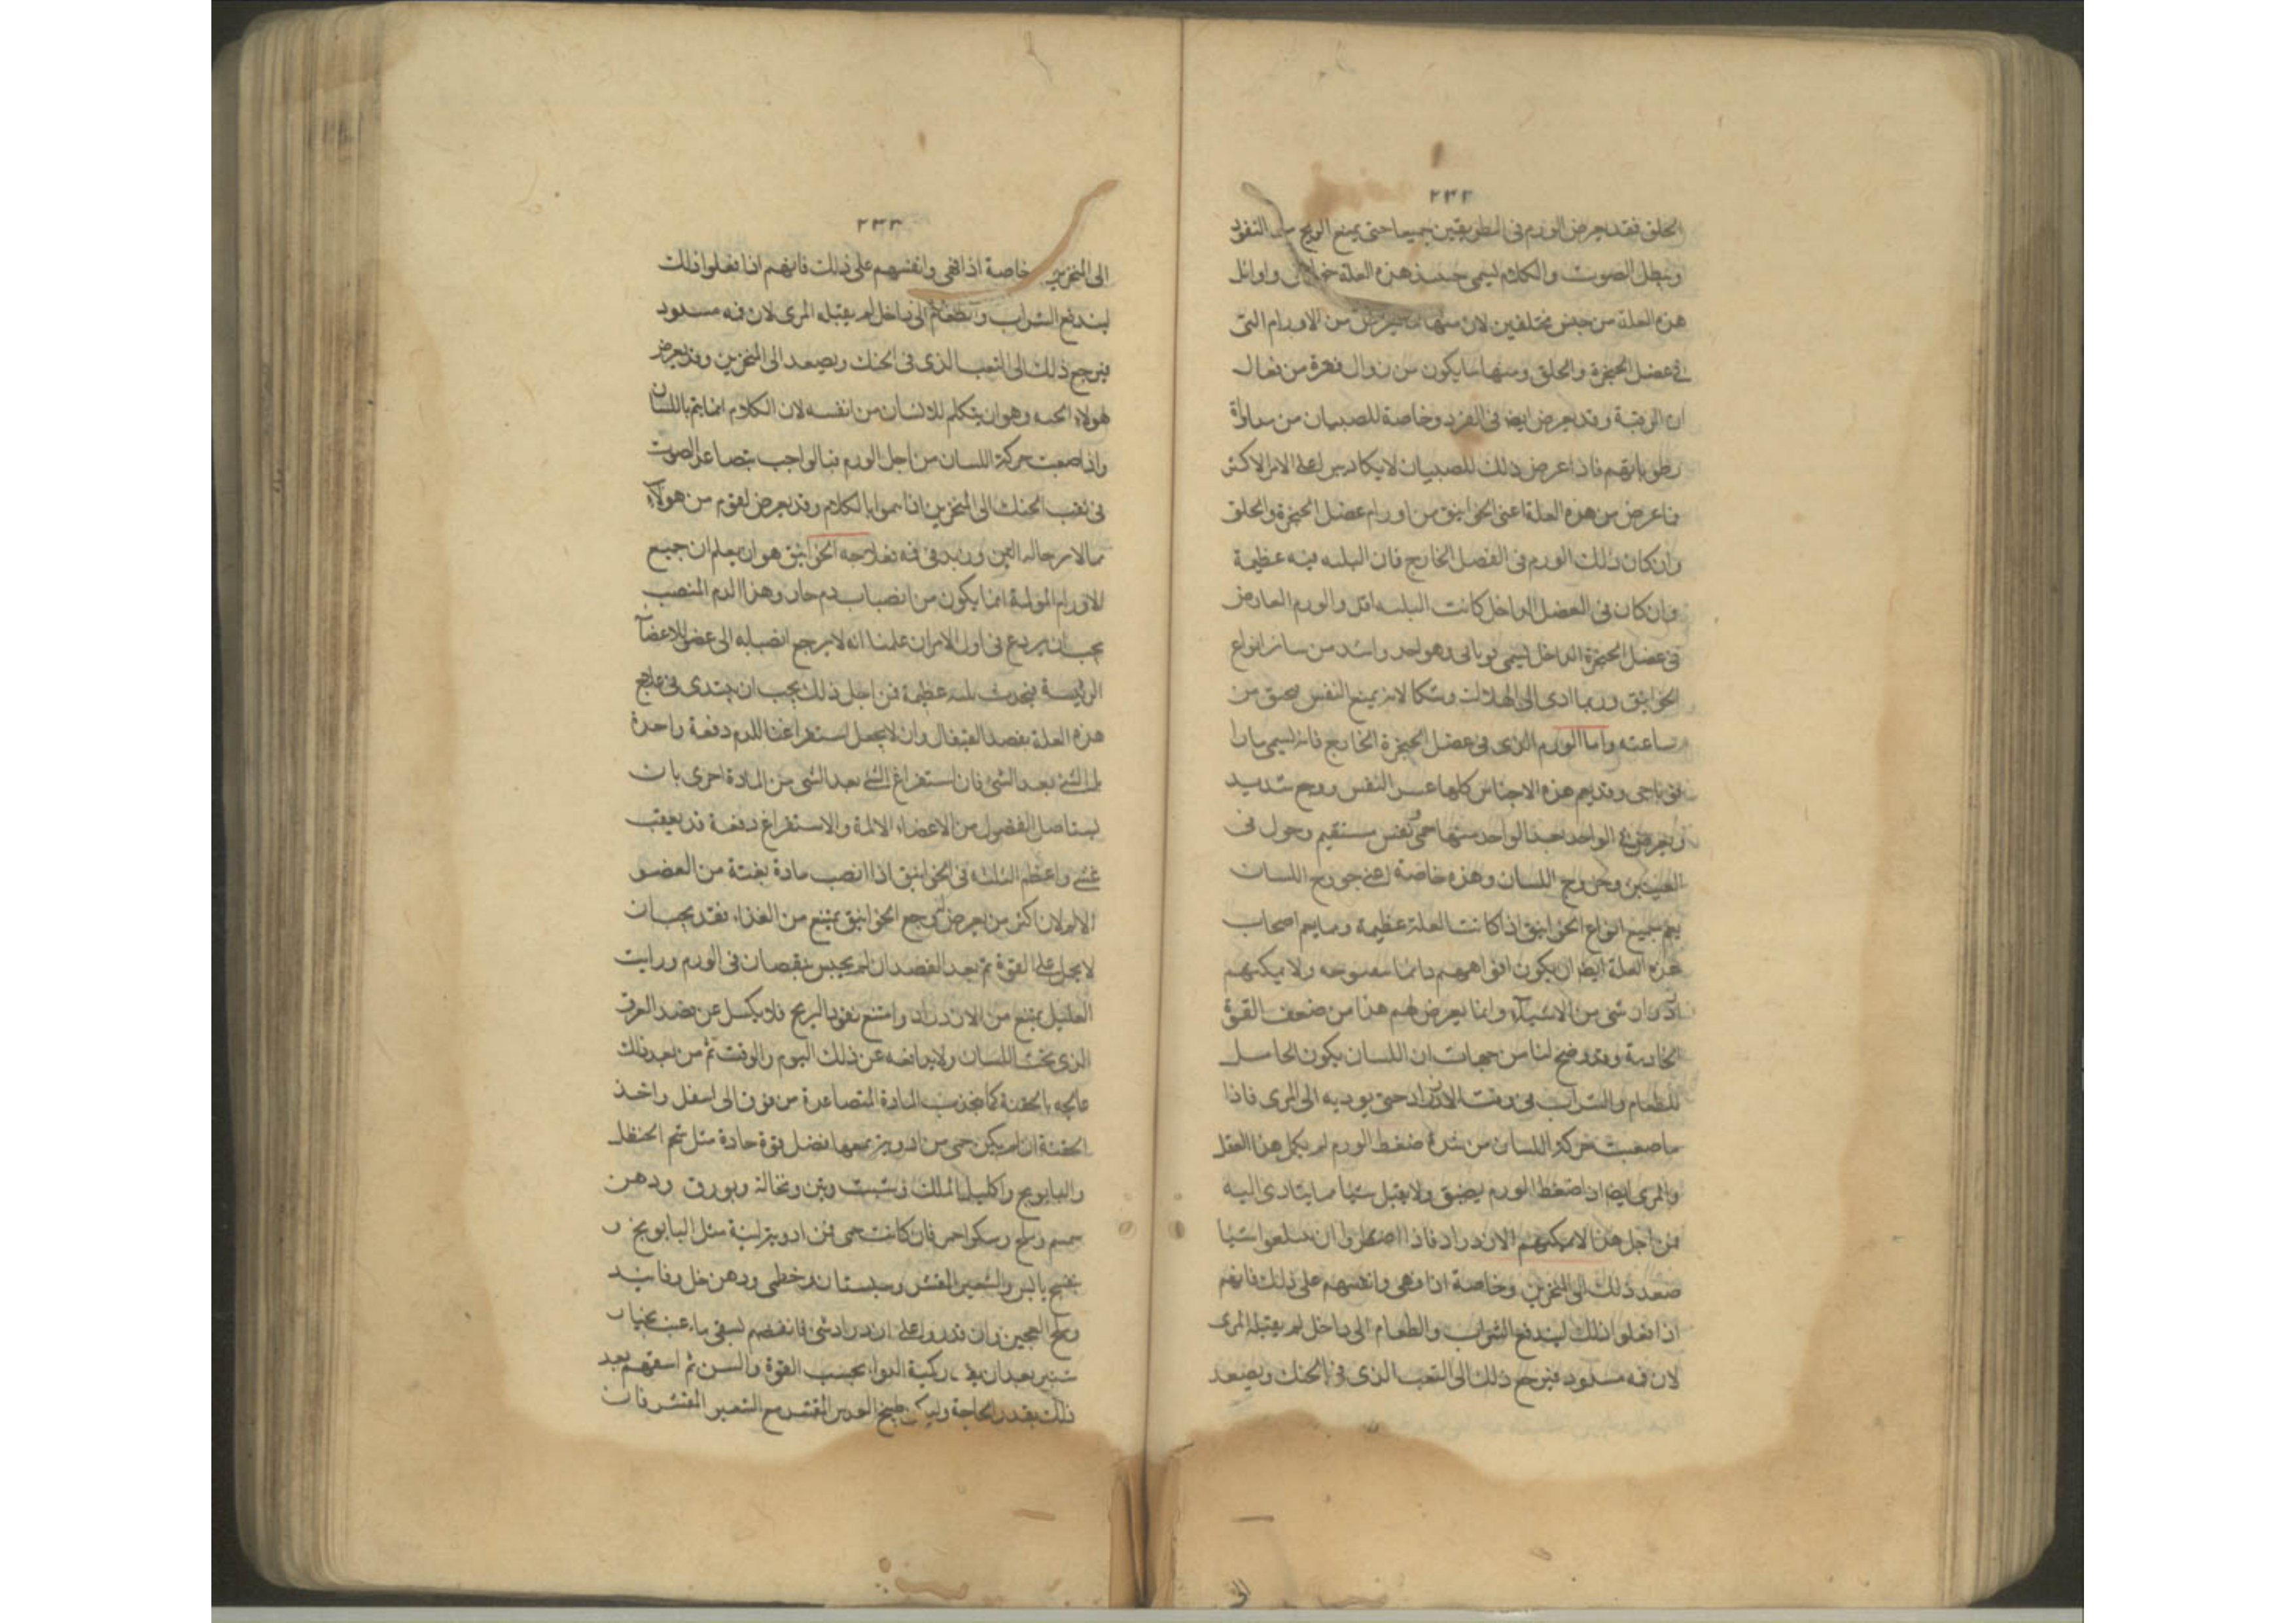 ٢٣٢
الحلق فقد يعرض الورم فى الطريقين جميعا حتى يمنع الريح من النفوذ
ويبطل الصوت والكلام ليمى هذه العلة واوائل
هذه العلة من جنس مختلفين لان منها ما يعرض من الاورام التى
فى عضل الحنجرة والحلق ومنها ما يكون من زوال فقرة من فقار
الرقبة وقد يعرض ايضا فى الفرد وخاصة للصبيان من
رطوباتهم فاذا عرض ذلك للصبيان لا يكاد الامر الاكثر
فاعرض من هذه العلة اعنى الخوانيق من اورام عضل الحنجرة والحلق
وان كان ذلك الورم فى الفصل الخارج فان البليه فيه عظيمة
وان كان فى العضل الداخل كانت البليه اقل والورم العارض
فى عضل الحنجرة الداخل ليمى وهو احد واشد من سائر انواع
الخوانيق وربما ادى الى الهلاك لانه يمنع النفس من
ساعته واما الورم الذى فى عضل الحنجرة الخارج فانه ليمى
وقد يعم هذه الاجناس كلها عسر النفس ووجع شديد
ويعرض فى الواحد بعد الواحد منها حمى ونفس مستقيم وحول فى
العينين وخروج اللسان وهذه خاصة اعنى خروج اللسان
يعم جميع انواع الخوانيق اذا كانت العلة عظيمة ومما يعم اصحاب
هذه العلة ايضا ان يكون افواههم دائما مفتوحه ولا يمكنهم
ازدراد شى من الاشيآء وانما يعرض لهم هذا من ضعف القوة
الجاذبة وقد وضح لنا من جهات ان اللسان يكون الحاسل
للطعام والشراب فى وقت الازدراد حتى يوديه الى المرى فاذا
ما صعبت حركة اللسان من شدة ضغط الورم لم يكمل هذا الفعل
والمرى ايضا اذا ضغط الورم يضيق ولا يقبل شيا مما يتادى اليه
فمن اجل هذا لا يمكنهم الازدراد فاذا اضطروا ان يبلعوا شيا
صعد ذلك الى المنخرين وخاصة اذا وانفسهم على ذلك فانهم
اذا فعلوا ذلك ليندفع الشراب والطعام الى داخل لم يقبله المرى
لان فمه مسدود فيرجع ذلك الى الثقب الذى فى الحنك ويصعد
الى
٢٣٣
الى المنخرين خاصة اذا وانفسهم على ذلك فانهم اذا فعلوا ذلك
ليندفع الشراب والطعام الى داخل لم يقبله المرى لان فمه مسدود
فيرجع ذلك الى الثقب الذى فى الحنك ويصعد الى المنخرين وقد يعرض
لهولاء وهو ان يتكلم الانسان من انفسه لان الكلام انما يتم باللسان
واذا صعبت حركة اللسان من اجل الورم فبالواجب يتصاعد الصوت
فى ثقب الحنك الى المنخرين اذا بالكلام وقد يعرض لقوم من هولآء
وزبد فى فمه فعلاجه الخوانيق هو ان يعلم ان جميع
الاورام المولمة انما يكون من انصباب دم حار وهذا الدم المنصب
يجب ان يردع فى اول الامر ان علمنا انه لا يرجع انصبابه الى عضو الاعضآ
الرئيسة فيحدث بليه عظيمة فمن اجل ذلك يجب ان يبتدى فى علاج
هذه العلة بفصد القيفال وان لا يجعل استفراغنا للدم دفعة واحدة
بل الشى بعد الشى فان استفراغ الشى بعد الشى من المادة احرى بان
يستاصل الفضول من الاعضاء الالمة والاستفراغ دفعة قد يعقب
غشى واعظم البليه فى الخوانيق اذا انصب مادة بغتة من العضو
الالم لان اكثر من يعرض له وجع الخوانيق يمتنع من الغذاء فقد يجب ان
لا يحمل على القوة ثم بعد الفصد ان لم يحس بنقصان فى الورم ورايت
العليل يمتنع من الازدراد وامتنع نفوذ الريح فلا يكسل عن فصد العرق
الذى تحت اللسان ولا يدافعه عن ذلك اليوم والوقت ثم من بعد ذلك
عالجه بالحقنة كيما يجذب المادة المتصاعدة من فوق الى اسفل واتخذ
الحقنة ان لم يكن حمى من ادوية معها فضل قوة حادة مثل شحم الحنظل
والبابونج واكليل الملك وشبت وتين ونخالة وبورق ودهن
سمسم وملح وسكر احمر فان كانت حمى فمن ادوية لينة مثل البابونج و
بنفسج يابس والشعير المقشر وسبستان وخطمى ودهن خل وفانيد
وملح العجين وان قدروا على ازدراد شى فانفعهم لسقى ماء عنب
شنبر بعد ان كمية الدواء بحسب القوة والسن ثم اسقهم بعد
ذلك بقدر الحاجة وليكن طبيخ العدس المقشر مع الشعير المقشر فان